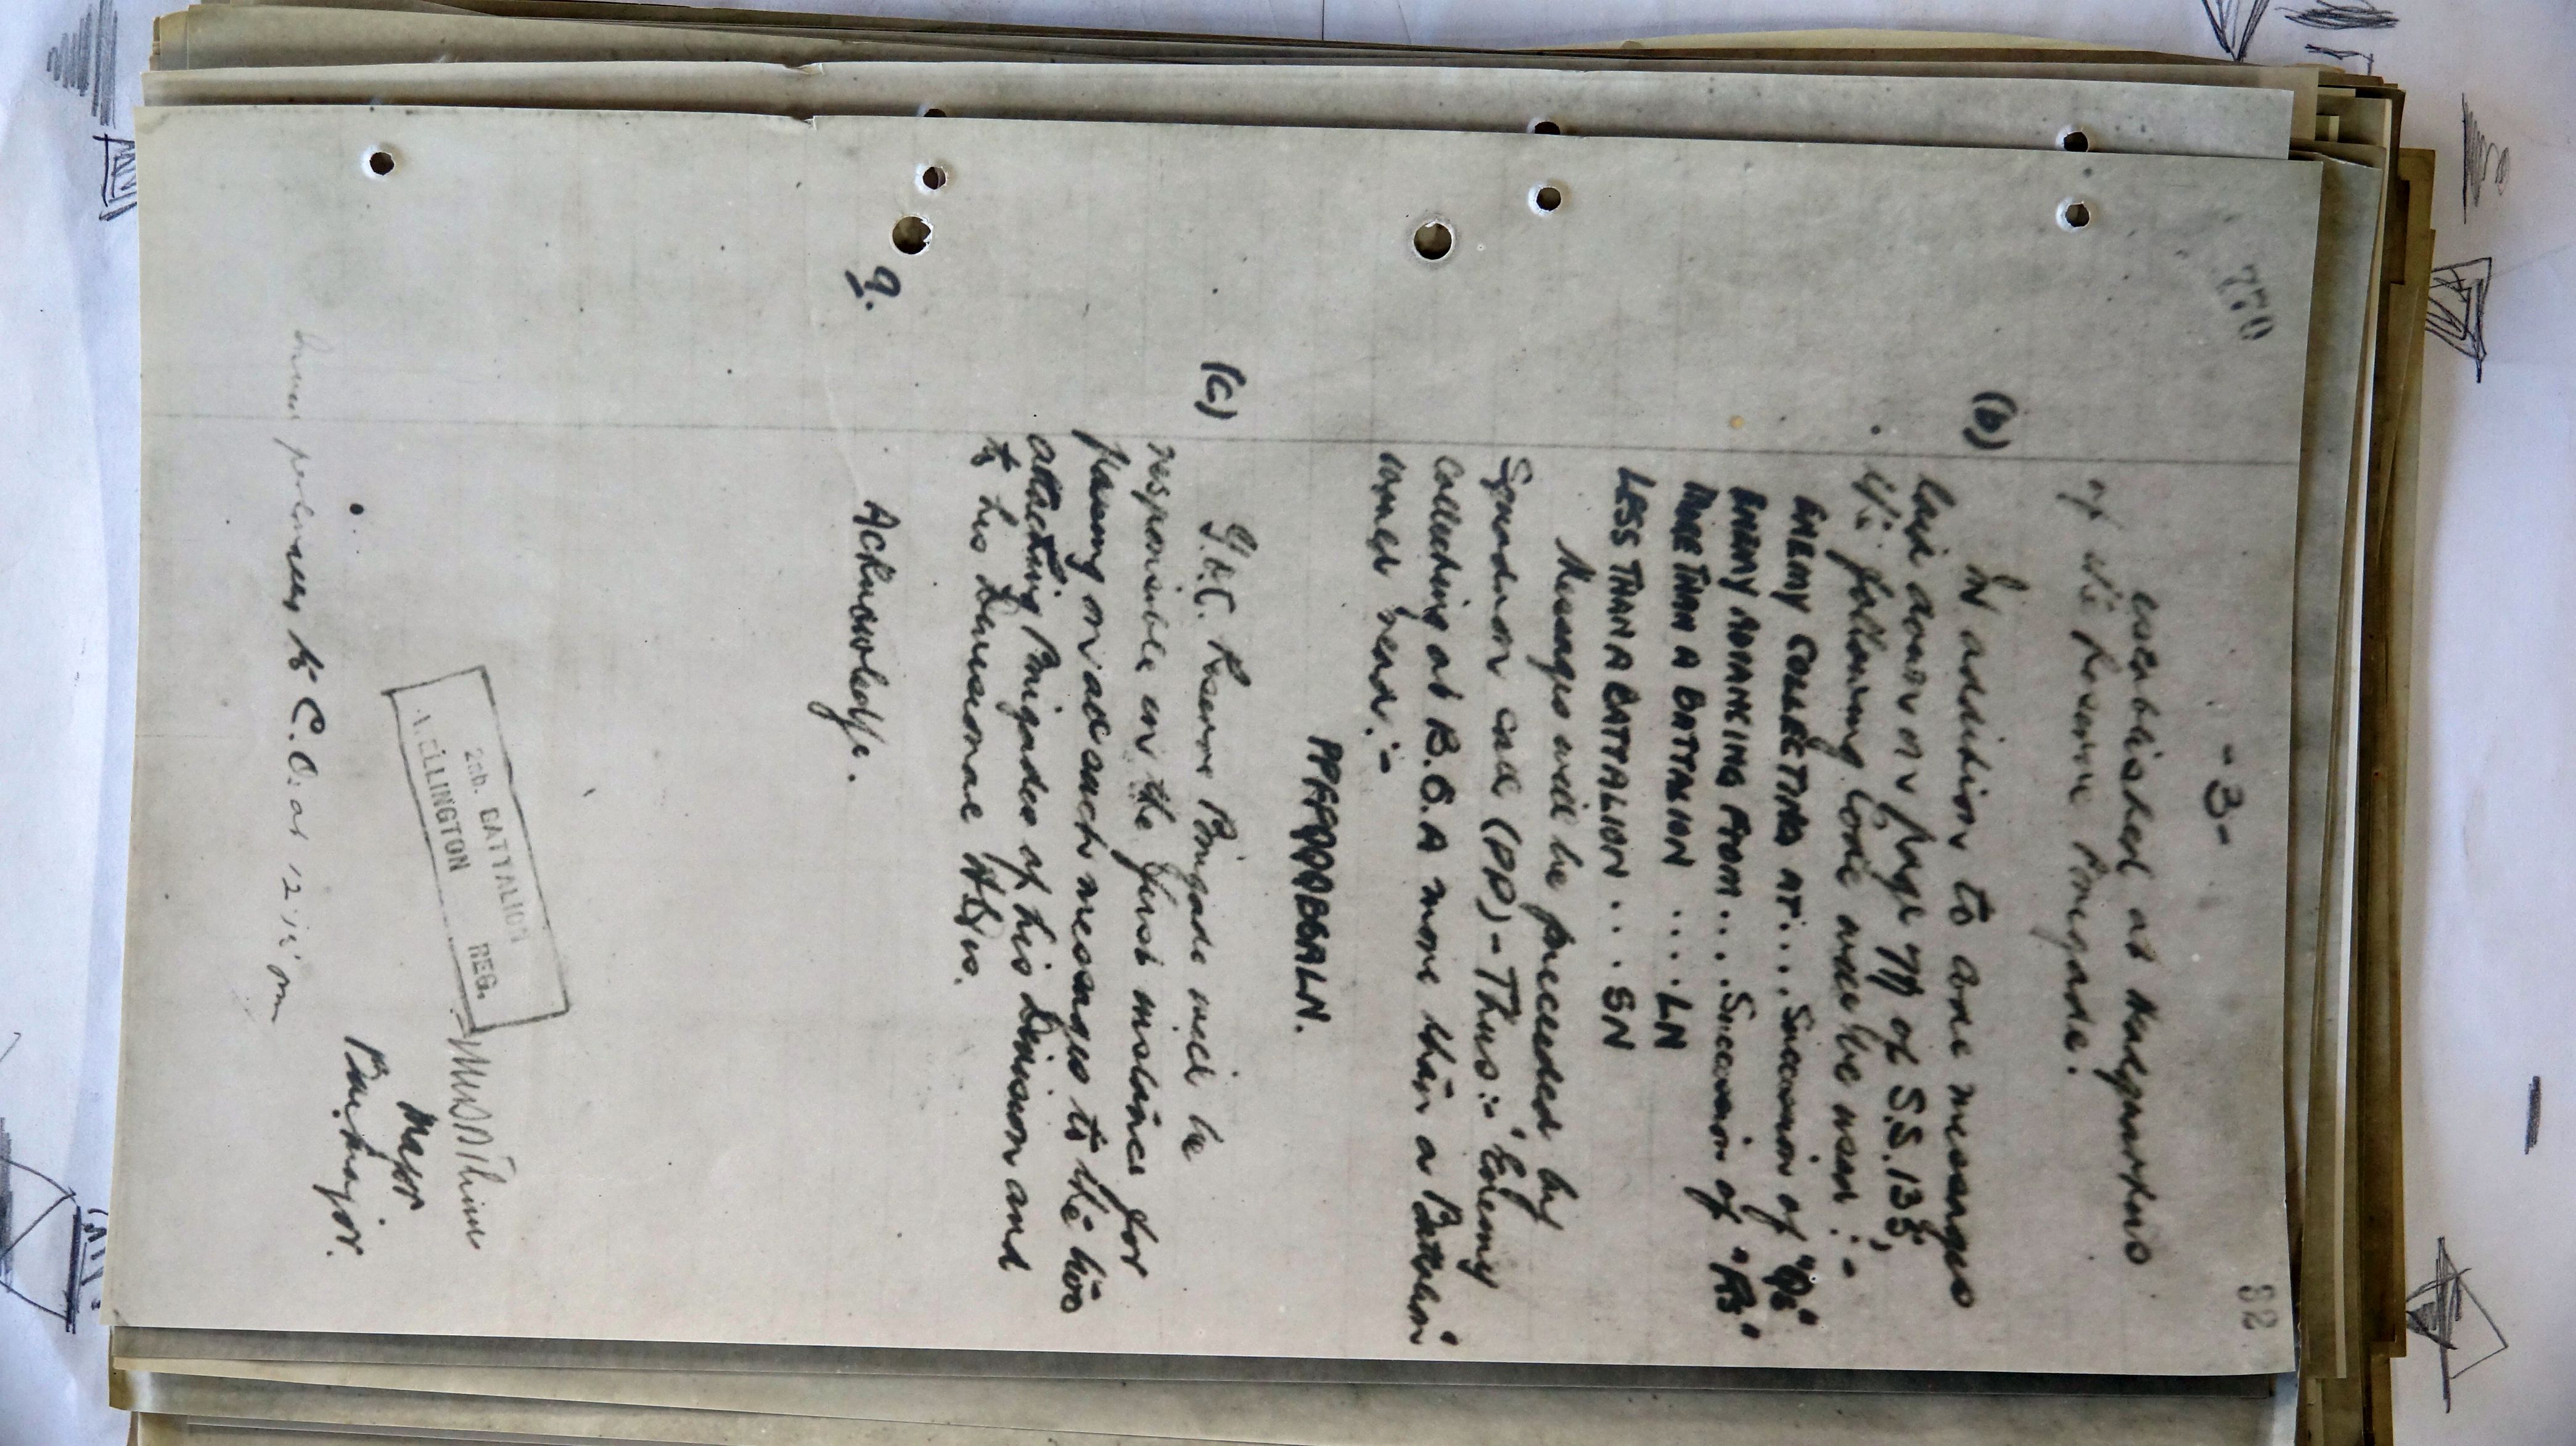 770
- 3 -
62
established at Headquarters
of the Reserve Brigade.
(b) In addition to code messages
laid down on page 77 of S.S. 135,
the following code will be used :-
ENEMY COLLECTING AT.... Succession of "Qs"
ENEMY ADVANCING FROM.... Succession of "Fs"
MORE THAN A BATTALION .... LN
LESS THAN A BATTALION ... SN
Messages will be preceeded by
Squadron call (PP) - Thus :- "Enemy
collecting at B.6.A more than a Battalion"
would read :-
(c) G.O.C. Reserve Brigade will be
responsible in the first instance for
passing on all such messages to the two
attacking Brigades of his Division and
to his Divisional Hdqrs.
9. Acknowledge.
2nd. BATTALION
WELLINGTON REG.
Major
Bde. Major.
to C.O. at 12